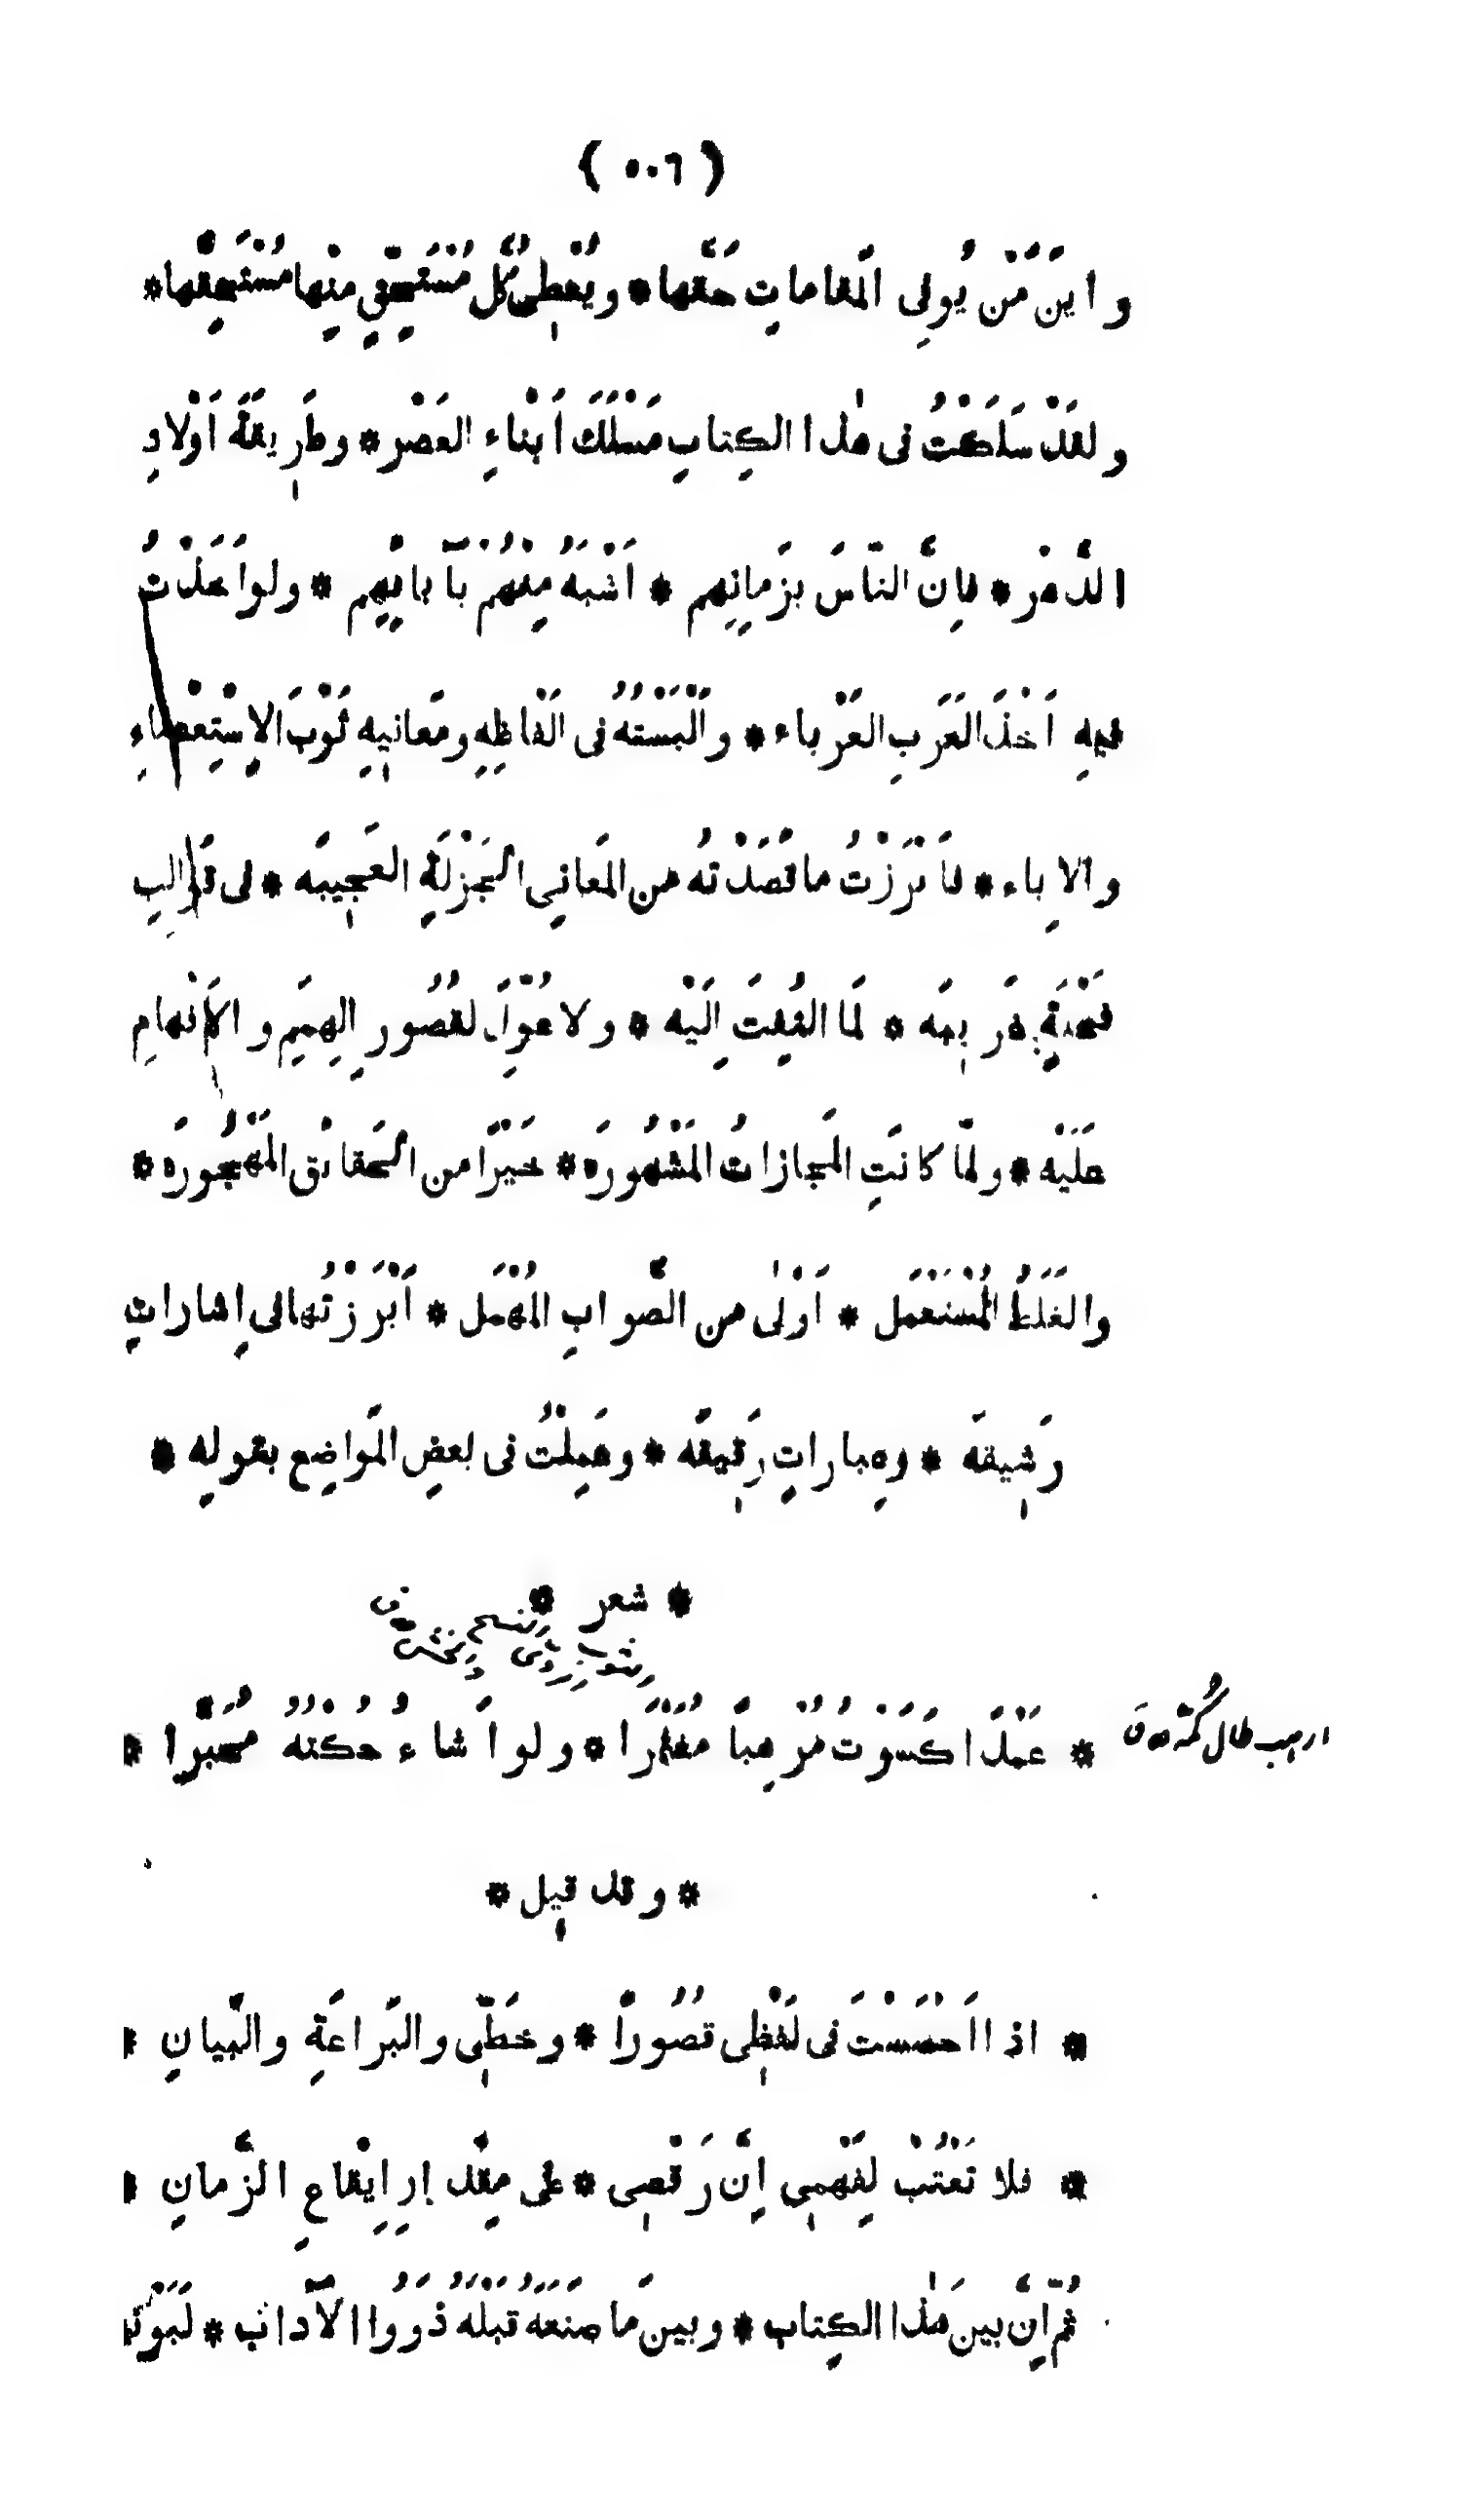 ( ٥٠٦ )
واينَ مَنْ يُولِى المَقاماتِ حَقَّها * ويُعْطِى كُلَّ مُسْتَحِقٍّ مِنْها مُسْتَحِقَّها *
ولقَدْ سَلَكْتُ فى هٰذا الكِتابِ مَسْلَكَ اَبْناءِ العَصْرِ * وطَرِيقَةَ اَوْلادِ
الدَّهْرِ * فاِنَّ النّاسَ بزَمانِهِم * اَشْبَهُ مِنْهُمْ بآبائِهِم * ولو اَخَذْتُ
فيهِ اَخْذَ العَرَبِ العَرْباء * واَلْبَسْتُهُ فى اَلْفاظِهِ ومَعانِيهِ ثَوْبَ الاِسْتِعْصاءِ
والاِباء * فاَبْرَزْتُ ما قَصَدْتُه من المَعانِى الجَزْلَةِ العَجِيبَه * فى قَوالِبِ
لَمَا الْتُفِتَ اِلَيْه * ولا عُوِّلَ لقُصُورِ الهِمَمِ والاَفْهامِ
عَلَيْه * ولمّا كانَتِ المَجازاتُ المَشْهُورَه * خَيْرًا من الحَقائق المَهْجُورَه *
والغَلَطُ المُسْتَعْمَل * اَوْلٰى من الصَّوابِ المُهْمَل * اَبْرَزْتُها فى اِشاراتٍ
رَشِيقَه * وعِباراتٍ رَقِيقَه * وعَمِلْتُ فى بعضِ المَواضِع بقولِه *
* شعر *
* عَمْدًا كَسَوْتُ مُزْهِبًا مُقَتَّرًا * ولو اَشاءُ حُكْتُهُ مُحَبَّرا *
* وقد قيل *
* اذا اَحْسَسْتَ فى لَفْظِى قُصُورًا * وخَطِّى والبَراعَةِ والبَيانِ *
* فلا تَعْتَبْ لِفَهْمِى اِنَّ رَقْصِى * على مِقْدارِ اِيقاعِ الزَّمانِ *
ثُمّ اِنَّ بينَ هٰذا الكِتابِ * وبينَ ما صَنَعَهُ قَبْلَهُ ذَوُوا الآدابِ * لَبَوْنًا